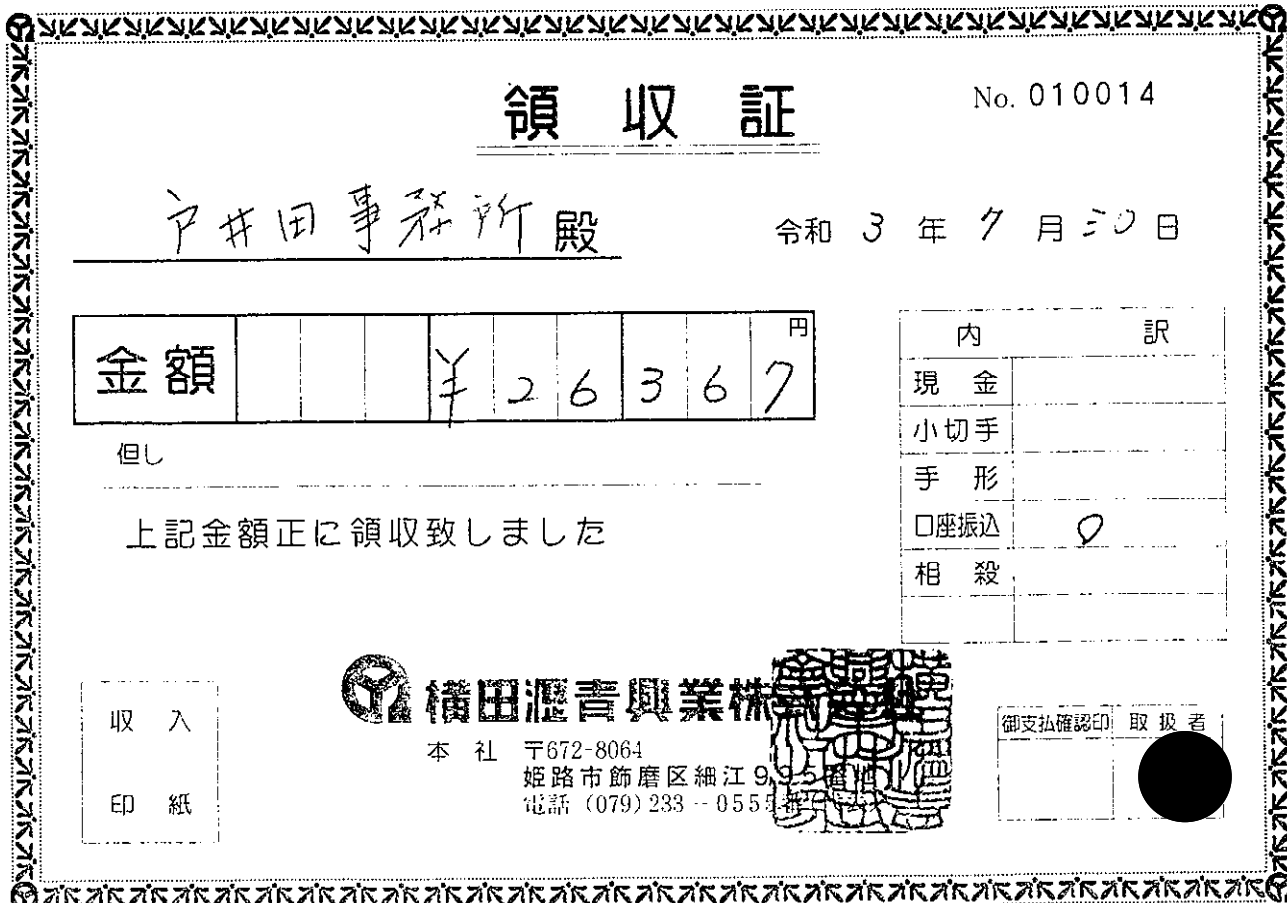 領収証
No. 010014
戸井田事務所 殿
令和 3 年 7 月 30 日
金額 ¥26367 円
但し
上記金額正に領収致しました
内訳
現金
小切手
手形
口座振込 ○
相殺
収入
印紙
横田瀝青興業株式会社
本社 〒672-8064
姫路市飾磨区細江995番地
電話 (079) 233-0555番
御支払確認印 取扱者